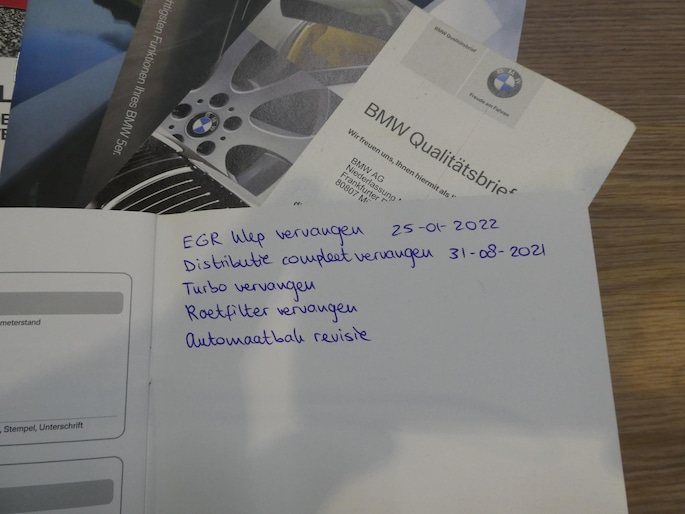 chtigsten Funktionen Ihres BMW 5er.
BMW Qualitätsbrief
Freude am Fahren
BMW Qualitätsbrief
Wir freuen uns, Ihnen hiermit als
BMW AG
Niederlassung
Frankfurter
80807 M
EGR klep vervangen 25-01-2022
Distributie compleet vervangen 31-08-2021
Turbo vervangen
Roetfilter vervangen
Automaatbak revisie
meterstand
, Stempel, Unterschrift